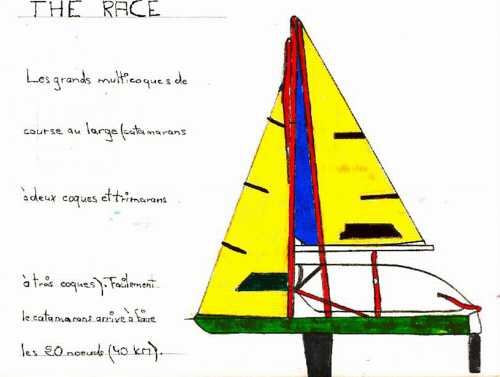 THE RACE
Les grands multicoques de
course au large (catamarans
à deux coques et trimarans
à trois coques). Facilement
le catamarans arrive à faire
les 20 noeuds (40 km).